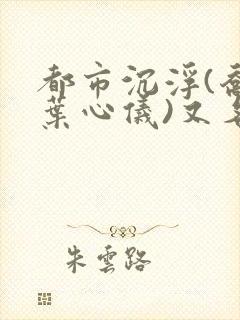 都市沉浮(
葉心儀)又
朱雲路